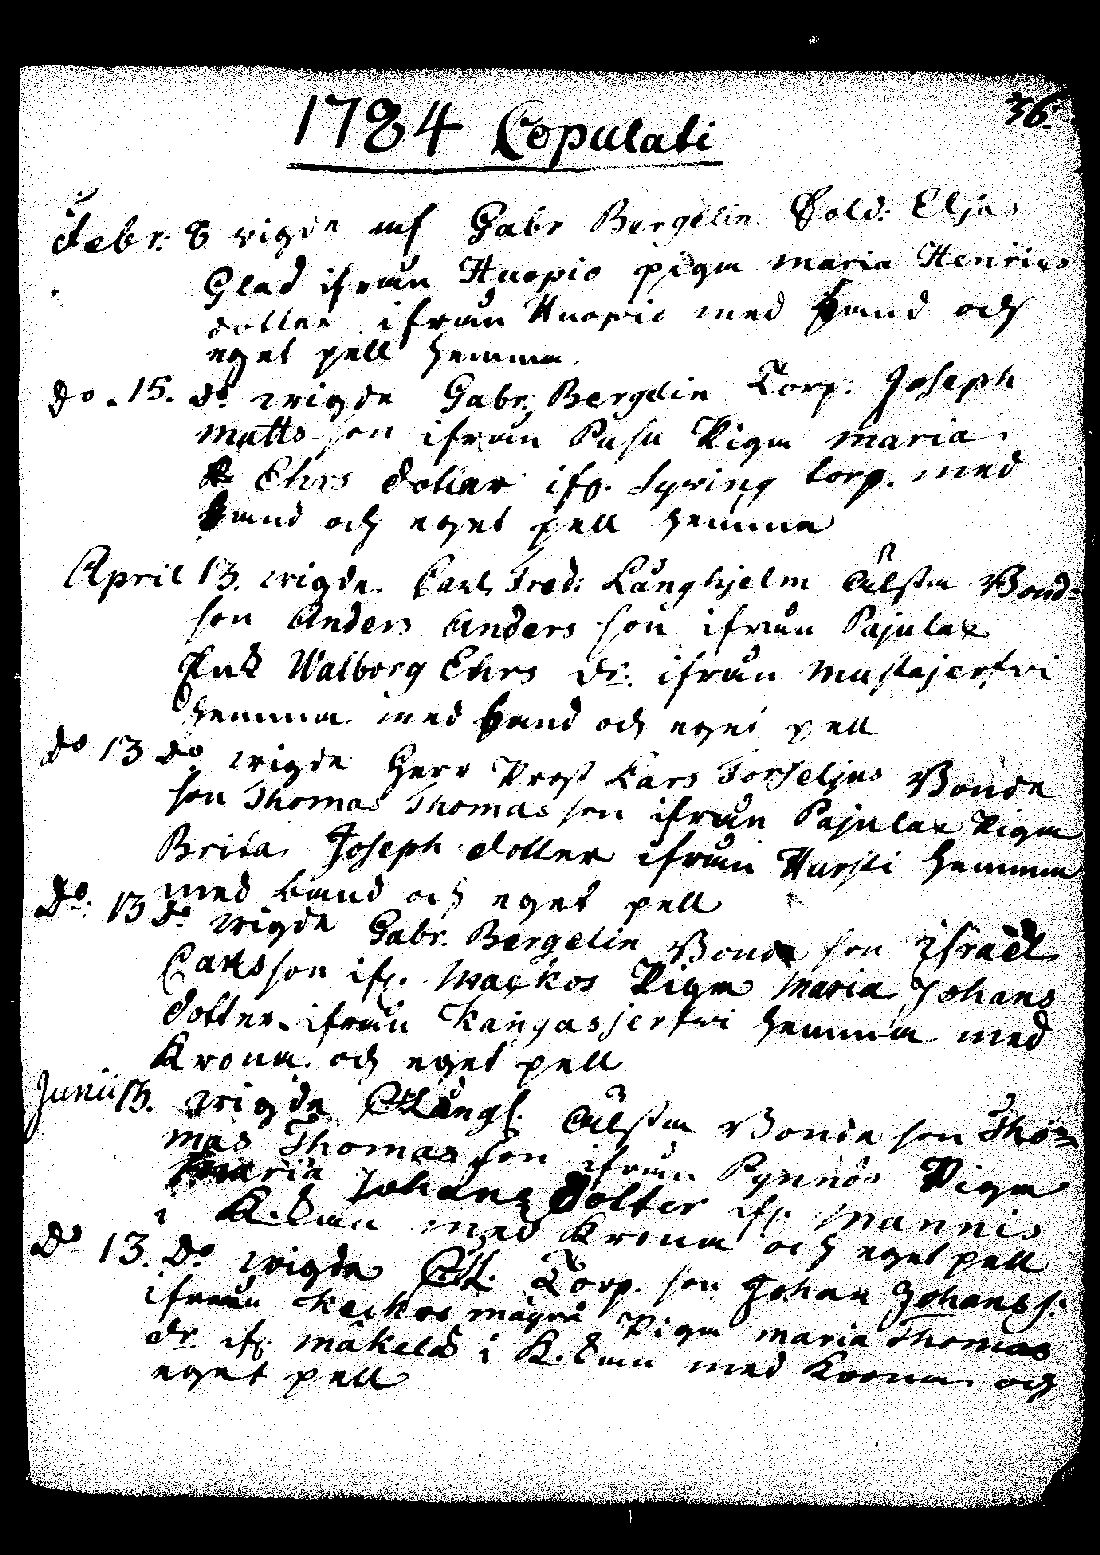 36.
1784 Copulati
Febr. 8 vigde af Gabr Bergelin Sold: Elias
Glad ifrån Kuopio pigan maria Henrics
dotter ifrån Kuopio med band och
eget pell hemma
do. 15. do vigde Gabr. Bergelin Torp. Joseph
Matts son ifrån Pusu Pigan maria
Ehrs dotter ifr. Spring torp. med
band och eget pell hemma
April 13. vigde Carl Fred: Långhjelm Bond
son Anders Anders son ifrån Pajulax
Enk Walborg Ehrs dr. ifrån Mustajerfvi
hemma med band och eget pell
do 13 do vigde Herr Prost Lars Forseljus Bonde
son Thomas Thomas son ifrån Pajulax Pigan
Brita Joseph dotter ifrån Hursti hemma
med band och eget pell
Do. 13 do vigde Gabr. Bergelin Bonde son Israel
Carlsson ifr. Wackos Pigan Maria Johans
dotter ifrån Kangasjerfvi hemma med
Krona och eget pell
Junii 13. vigde Bonde son Tho
mas Thomas son ifrån Pynnös Pigan
maria Johans Dotter ifr. Mannis
i K. med Krona och eget pell
Do 13. Do vigde Torp. son Johan Johanss.
ifrån Pigan maria Thomas
dr. ifr. mäkelä i K. med Krona och
eget pell